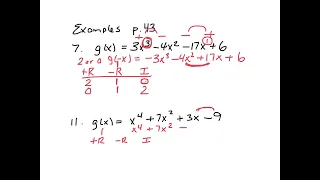 Examples p. 43
+ - - +
7. g(x) = 3x³ - 4x² - 17x + 6
2 or 0 g(-x) = -3x³ - 4x² + 17x + 6
+R -R I
2 1 0
0 1 2
11. g(x) = x⁴ + 7x² + 3x - 9
1 x⁴ + 7x² -
+R -R I